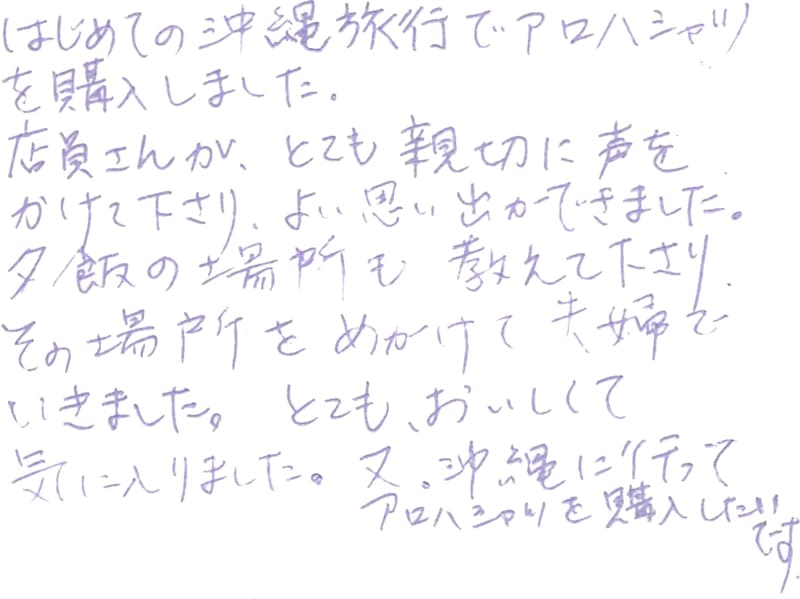 はじめての沖縄旅行でアロハシャツ
を購入しました。
店員さんが、とても親切に声を
かけて下さり、よい思い出ができました。
夕飯の場所も教えて下さり、
その場所をめがけて夫婦で
いきました。とても、おいしくて
気に入りました。又。沖縄に行って
アロハシャツを購入したい
です.